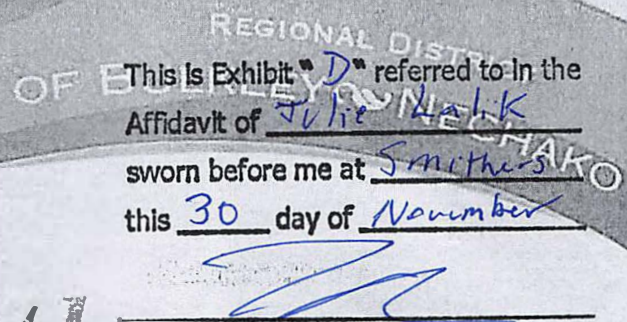 REGIONAL DISTRICT
OF BULKLEY NECHAKO
This is Exhibit "D" referred to in the
Affidavit of Julie Lalik
sworn before me at Smithers
this 30 day of November